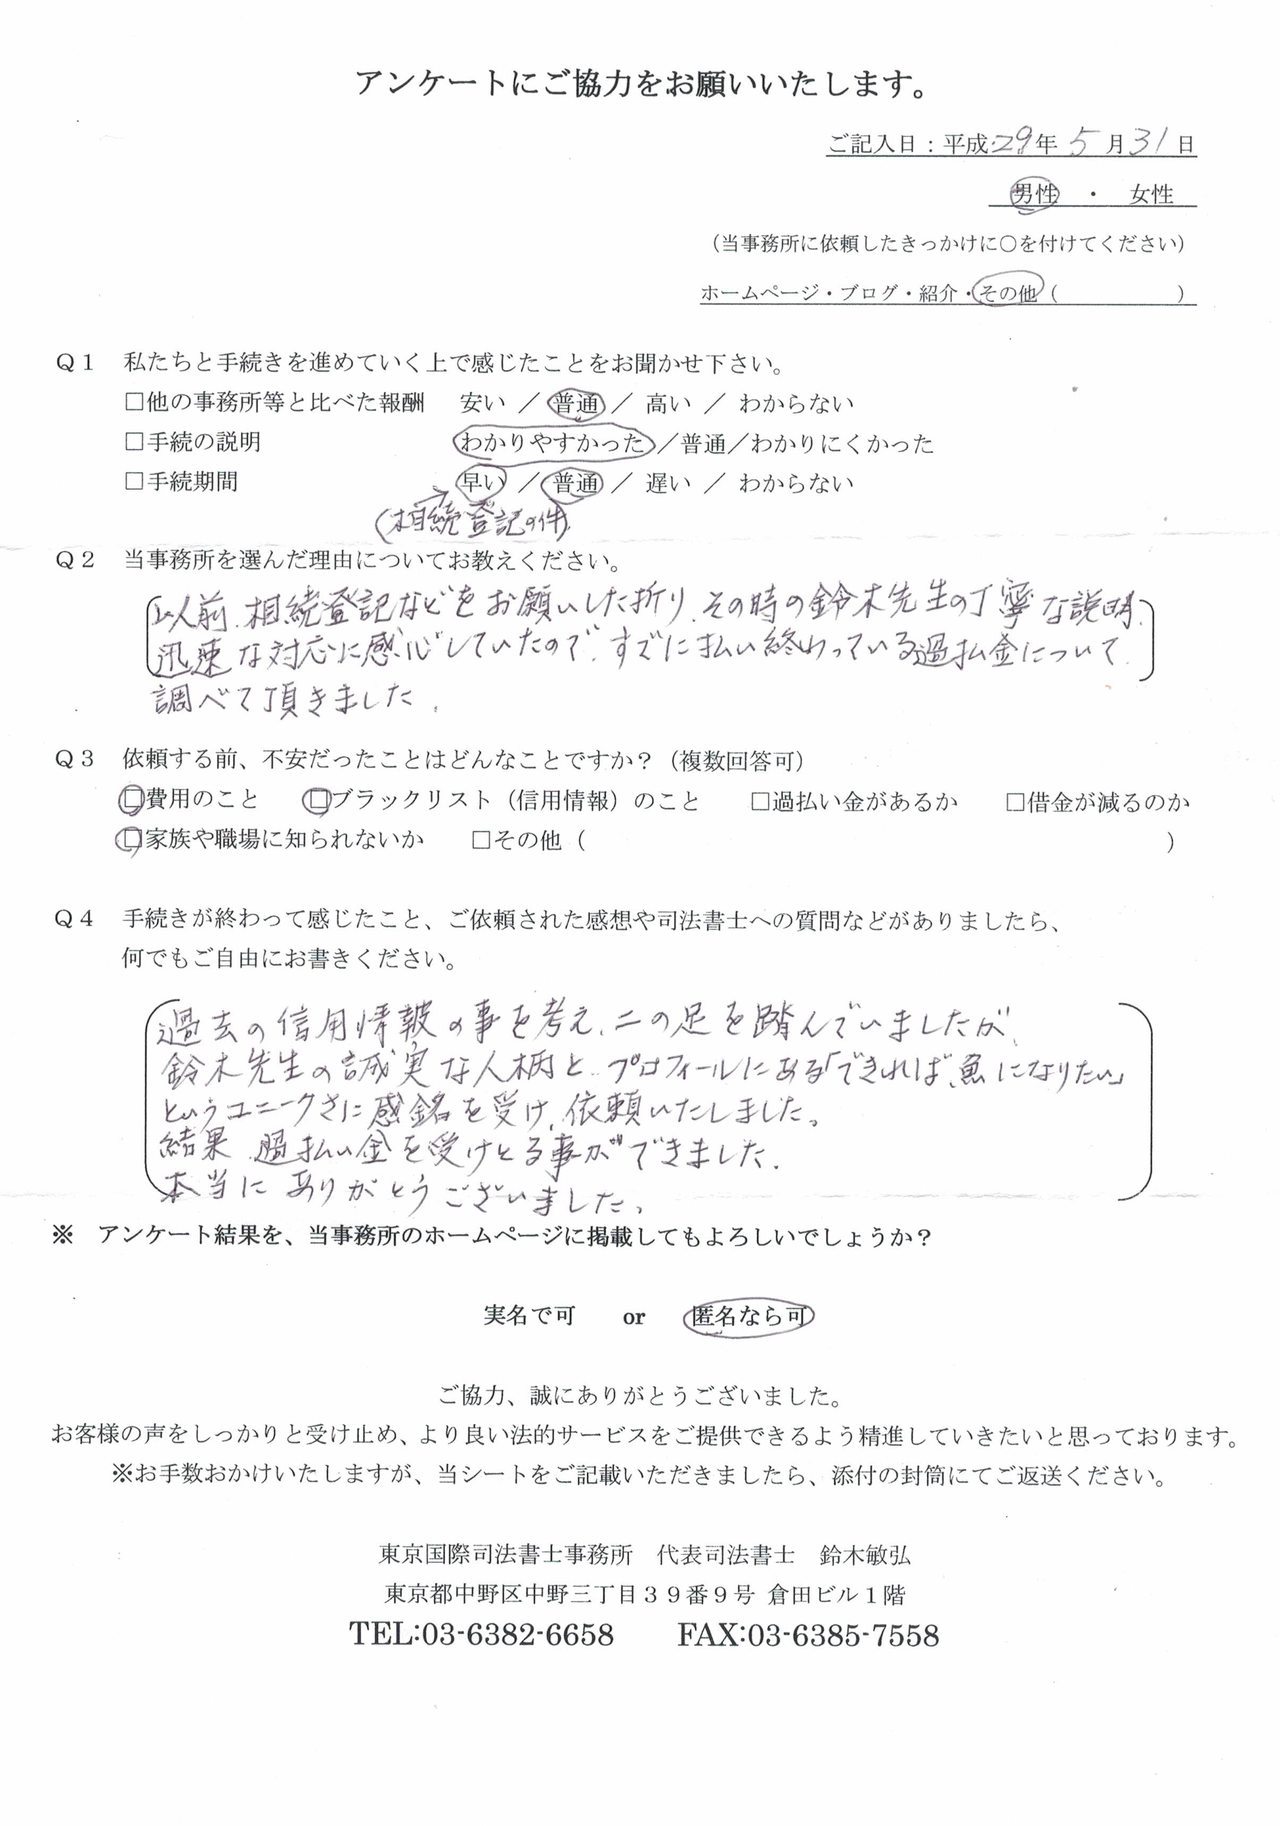 アンケートにご協力をお願いいたします。
ご記入日：平成29年 5月31日
男性 ・ 女性
（当事務所に依頼したきっかけに○を付けてください）
ホームページ・ブログ・紹介・その他（　　　　　）
Q1 私たちと手続きを進めていく上で感じたことをお聞かせ下さい。
□他の事務所等と比べた報酬 安い ／ 普通 ／ 高い ／ わからない
□手続の説明 わかりやすかった ／普通／わかりにくかった
□手続期間 早い ／ 普通 ／ 遅い ／ わからない
(相続登記の件)
Q2 当事務所を選んだ理由についてお教えください。
以前、相続登記などをお願いした折り、その時の鈴木先生の丁寧な説明、
迅速な対応に感心していたので、すでに払い終わっている過払金について
調べて頂きました。
Q3 依頼する前、不安だったことはどんなことですか？（複数回答可）
□費用のこと □ブラックリスト（信用情報）のこと □過払い金があるか □借金が減るのか
□家族や職場に知られないか □その他（　　　　　）
Q4 手続きが終わって感じたこと、ご依頼された感想や司法書士への質問などがありましたら、
何でもご自由にお書きください。
過去の信用情報の事を考え、二の足を踏んでいましたが、
鈴木先生の誠実な人柄と、プロフィールにある「できれば、魚になりたい」
というユニークさに感銘を受け、依頼いたしました。
結果、過払い金を受けとる事ができました。
本当にありがとうございました。
※ アンケート結果を、当事務所のホームページに掲載してもよろしいでしょうか？
実名で可 or 匿名なら可
ご協力、誠にありがとうございました。
お客様の声をしっかりと受け止め、より良い法的サービスをご提供できるよう精進していきたいと思っております。
※お手数おかけいたしますが、当シートをご記載いただきましたら、添付の封筒にてご返送ください。
東京国際司法書士事務所 代表司法書士 鈴木敏弘
東京都中野区中野三丁目３９番９号 倉田ビル１階
TEL:03-6382-6658 FAX:03-6385-7558